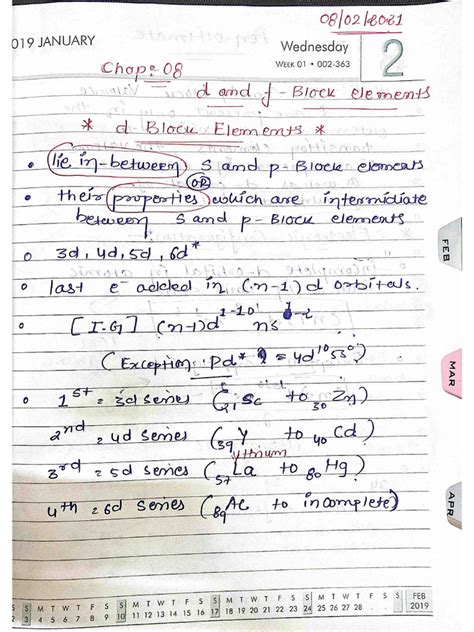 08/02/2021
019 JANUARY
Wednesday
WEEK 01 • 002-363
2
Chap:- 08
d and f - Block elements
* d Block Elements *
• lie in-between S and p-Block elements
OR
• their properties which are intermediate
between S and p-Block elements
• 3d, 4d, 5d, 6d*
• last e⁻ added in (n-1)d orbitals.
• [I.G] (n-1)d¹⁻¹⁰ ns
(Exception: Pd* = 4d¹⁰5s⁰)
• 1st = 3d series (₂₁Sc to ₃₀Zn)
2nd = 4d series (₃₉Y to ₄₀Cd)
yttrium
3rd = 5d series (₅₇La to ₈₀Hg)
4th = 6d series (₈₉Ac to incomplete)
FEB
MAR
APR
S M T W T F S S M T W T F S S M T W T F S S M T W T F S S FEB
3 4 5 6 7 8 9 10 11 12 13 14 15 16 17 18 19 20 21 22 23 24 25 26 27 28 2019